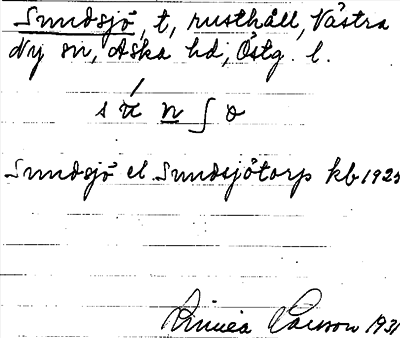 Sundsjö, t, rusthåll, Västra
Ny sn, Aska hd, Östg. l.
Sundsjö el Sundsjötorp kb 1925
Linnea Larsson 1931